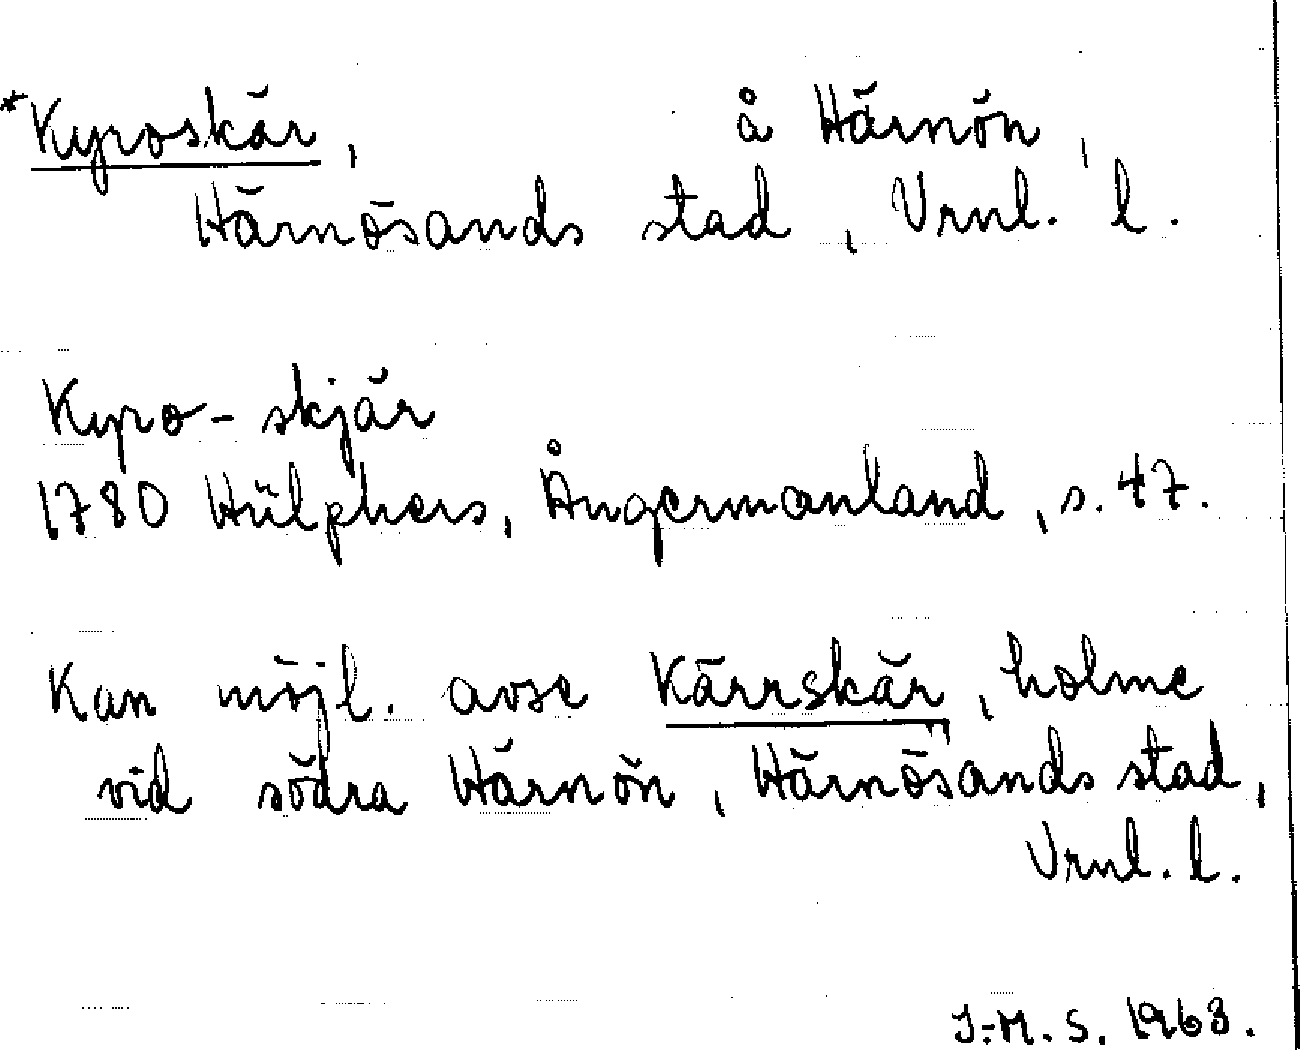 *Kyposkär, å Härnön,
Härnösands stad, Vrnl. l.
Kypo-skjär
1780 Hülphers, Ångermanland, s. 47.
Kan möjl. avse Kärrskär, holme
vid södra Härnön, Härnösands stad,
Vrnl. l.
I-M. S. 1963.